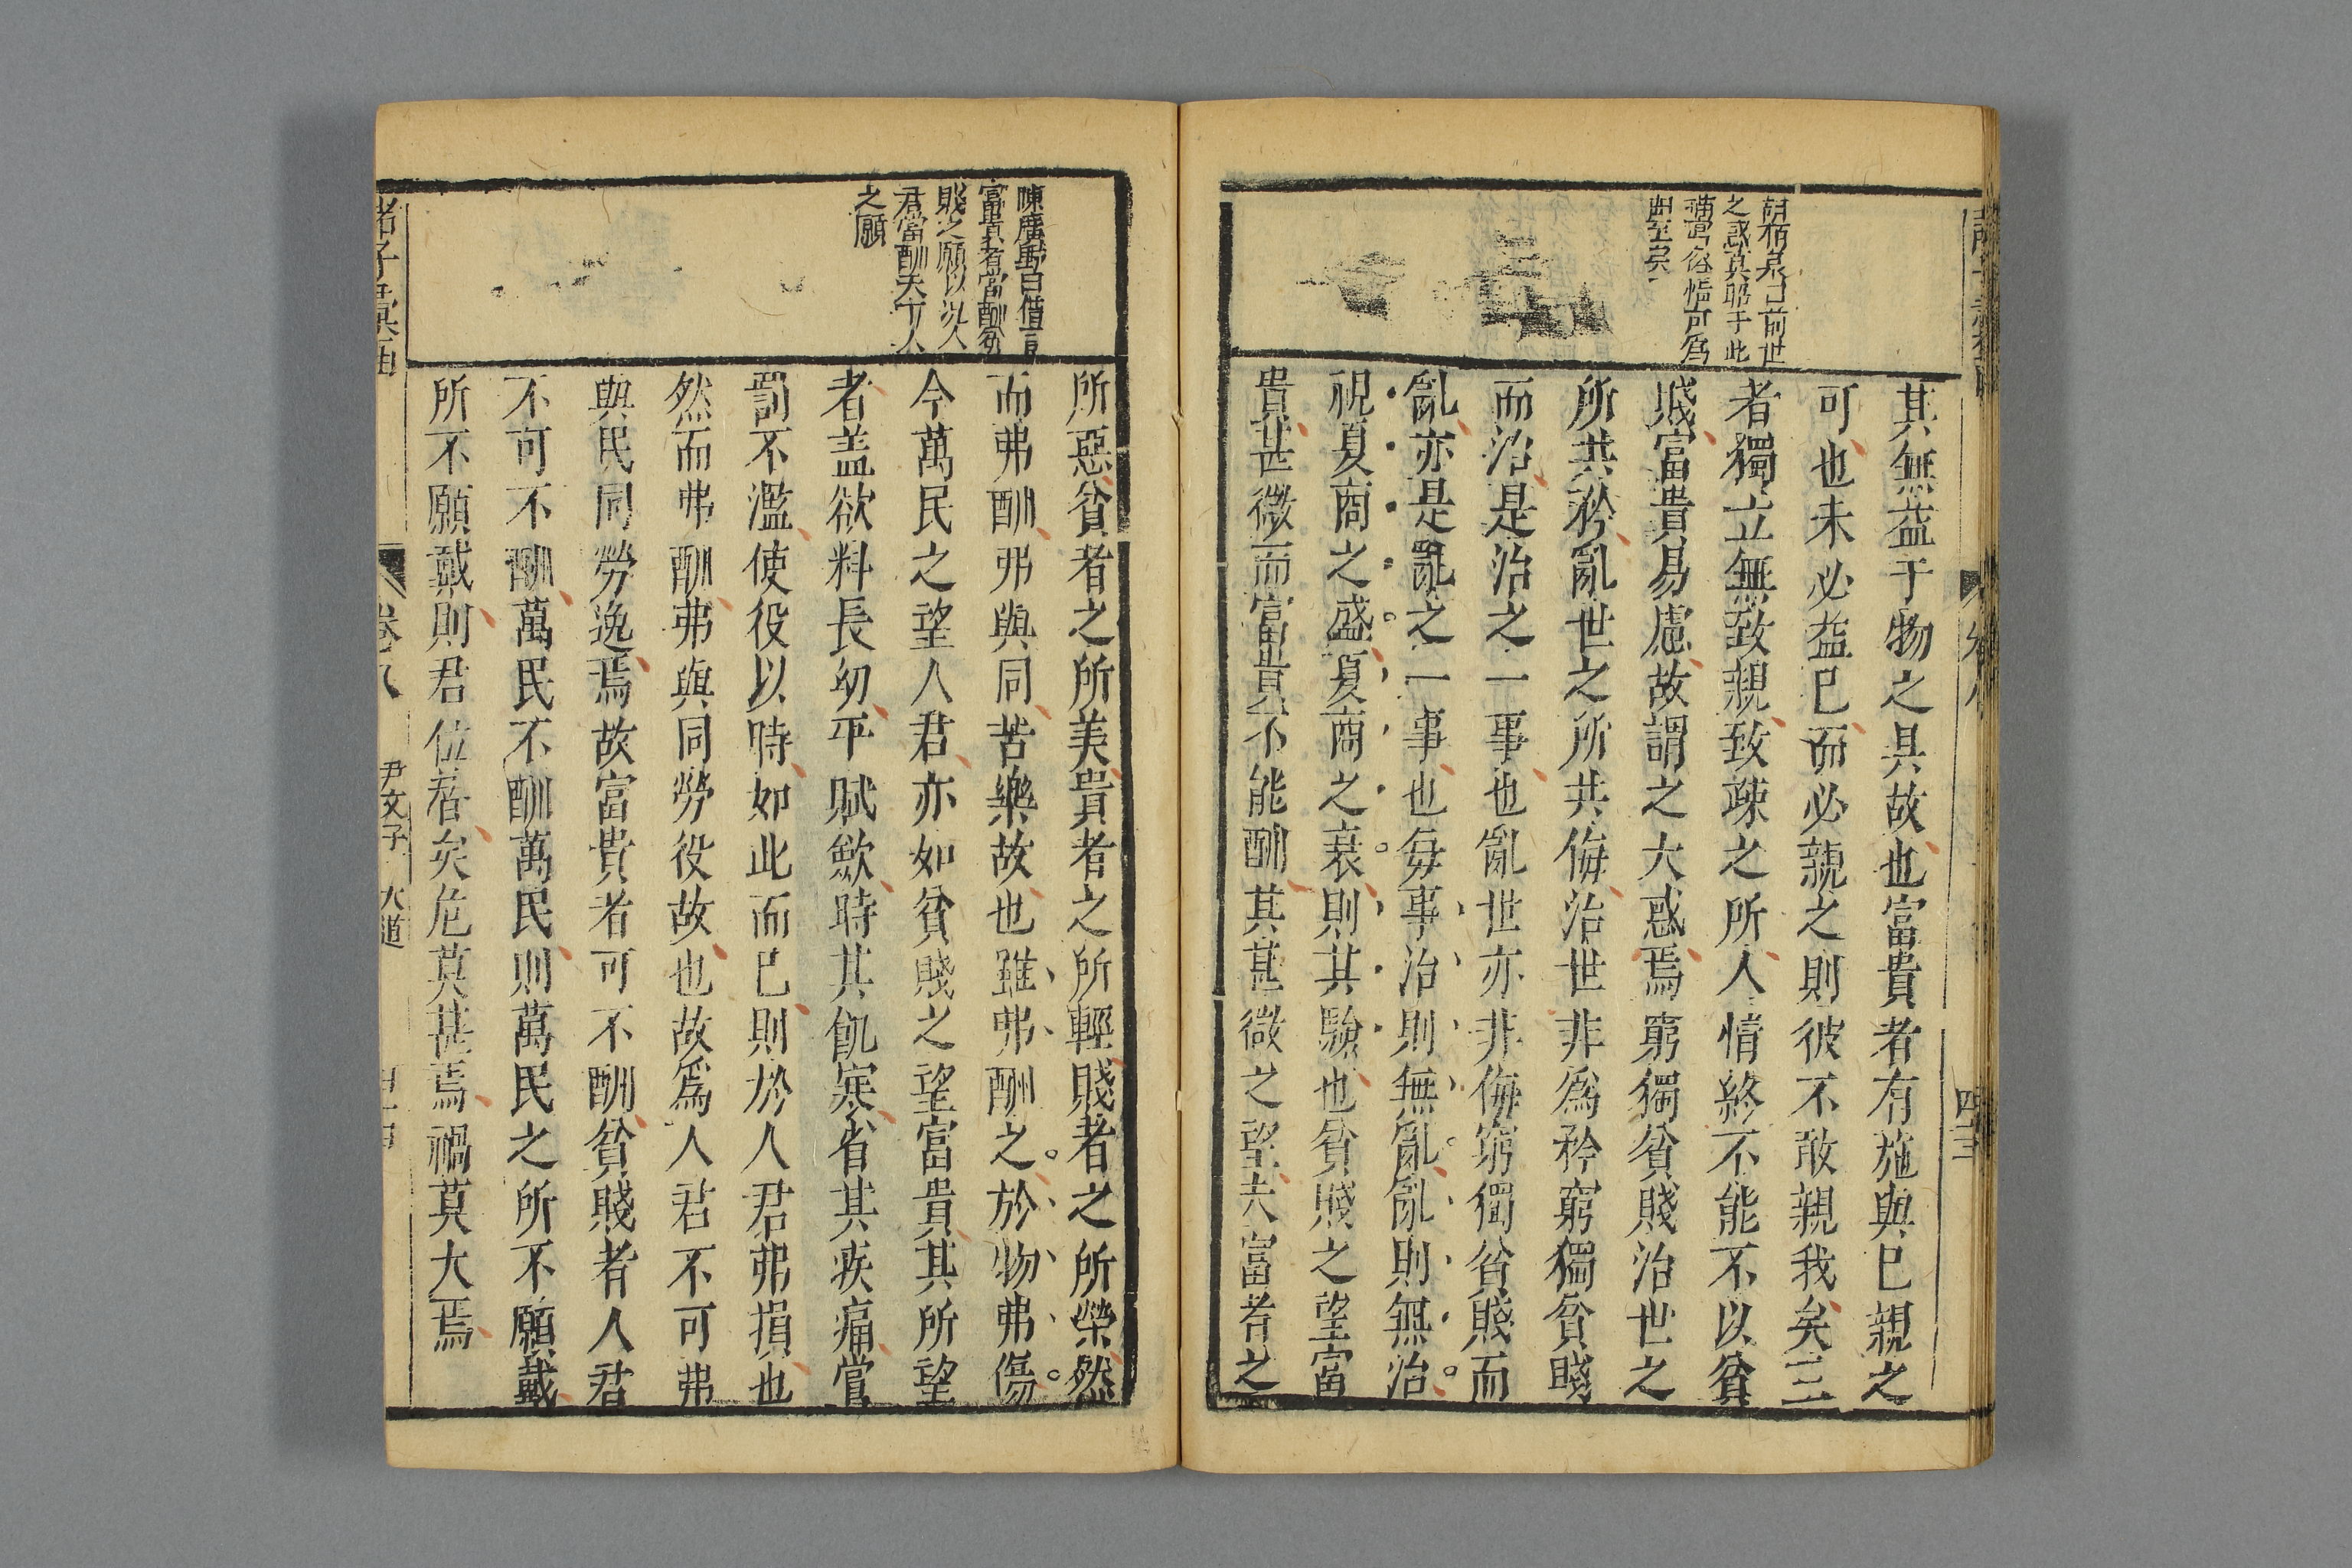 其無益于物之具故也富貴者有施與已親之
可也未必益已而必親之則彼不敢親我矣三
者獨立無致親致疎之所人情終不能不以貧
賤富貴易慮故謂之大惑焉窮獨貧賤治世之
所共矜亂世之所共侮治世非爲矜窮獨貧賤
而治是治之一事也亂世亦非侮窮獨貧賤而
亂亦是亂之一事也每事治則無亂亂則無治
視夏商之盛夏商之衰則其驗也貧賤之望富
貴甚微而富貴不能酬其甚微之望夫富者之
四三
陳廣野曰借言
富貴者當酬貧
賤之願以㳄人
君當酬天下人
之願
所惡貧者之所美貴者之所輕賤者之所榮然
而弗酬弗與同苦樂故也雖弗酬之於物弗傷
今萬民之望人君亦如貧賤之望富貴其所望
者盖欲料長幼平賦斂時其飢寒省其疾痛賞
罰不濫使役以時如此而已則於人君弗損也
然而弗酬弗與同勞役故也故爲人君不可弗
與民同勞逸焉故富貴者可不酬貧賤者人君
不可不酬萬民不酬萬民則萬民之所不願戴
所不願戴則君位替矣危莫甚焉禍莫大焉
卷八 尹文子 大道